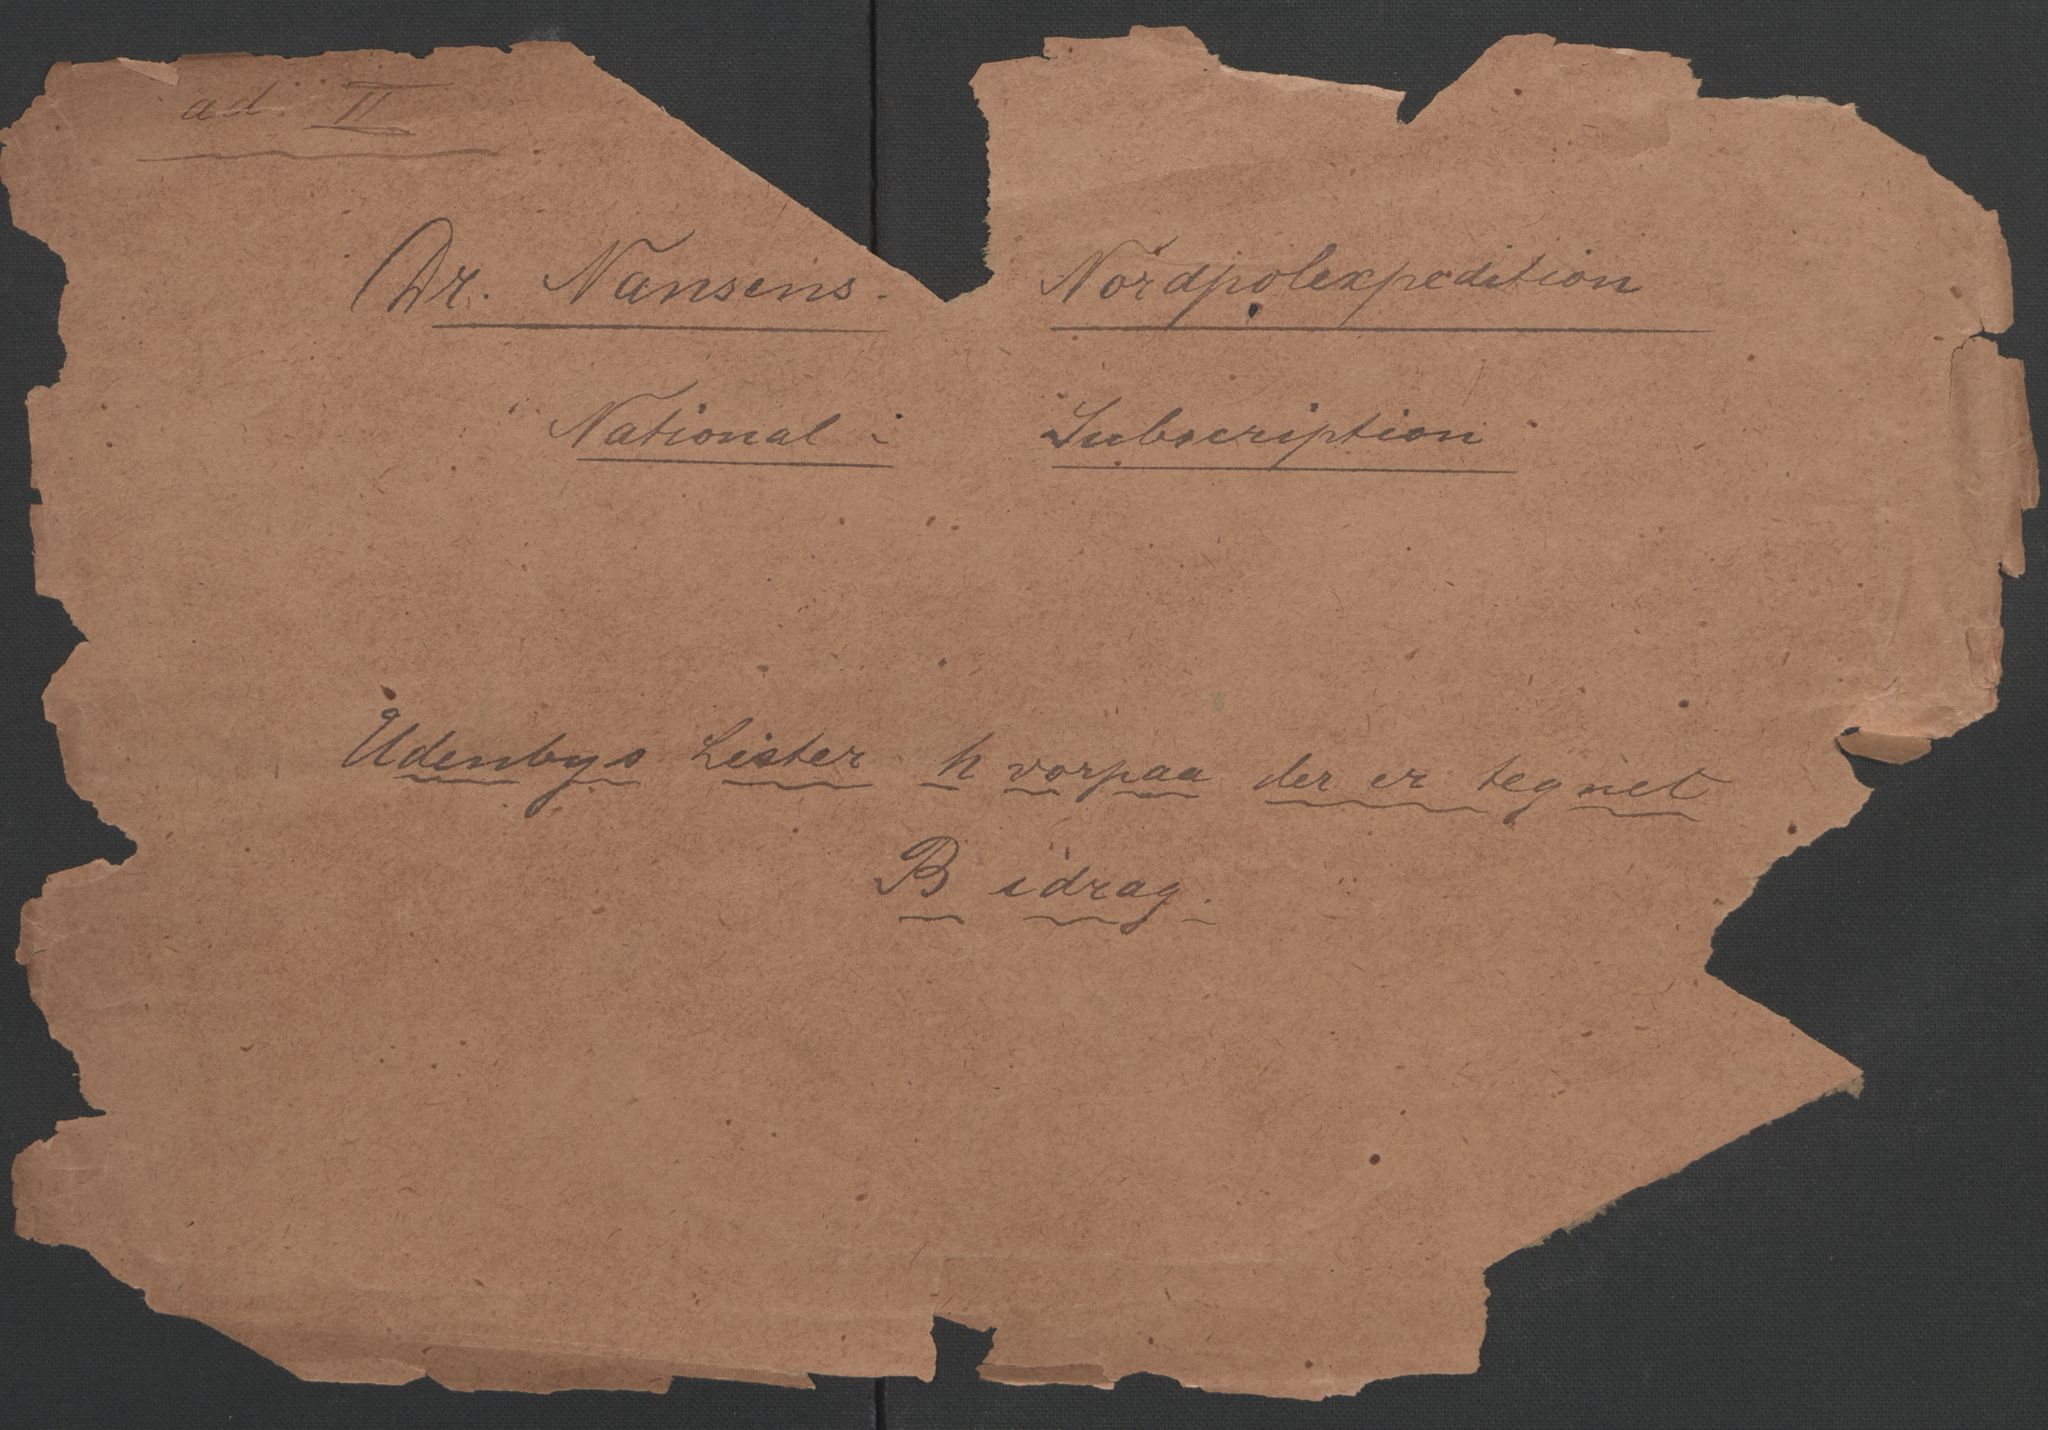 ad. II
Dr. Nansens. Nordpolexpedition
National - Subscription
Udenbys Lister hvorpaa der er tegnet
Bidrag.